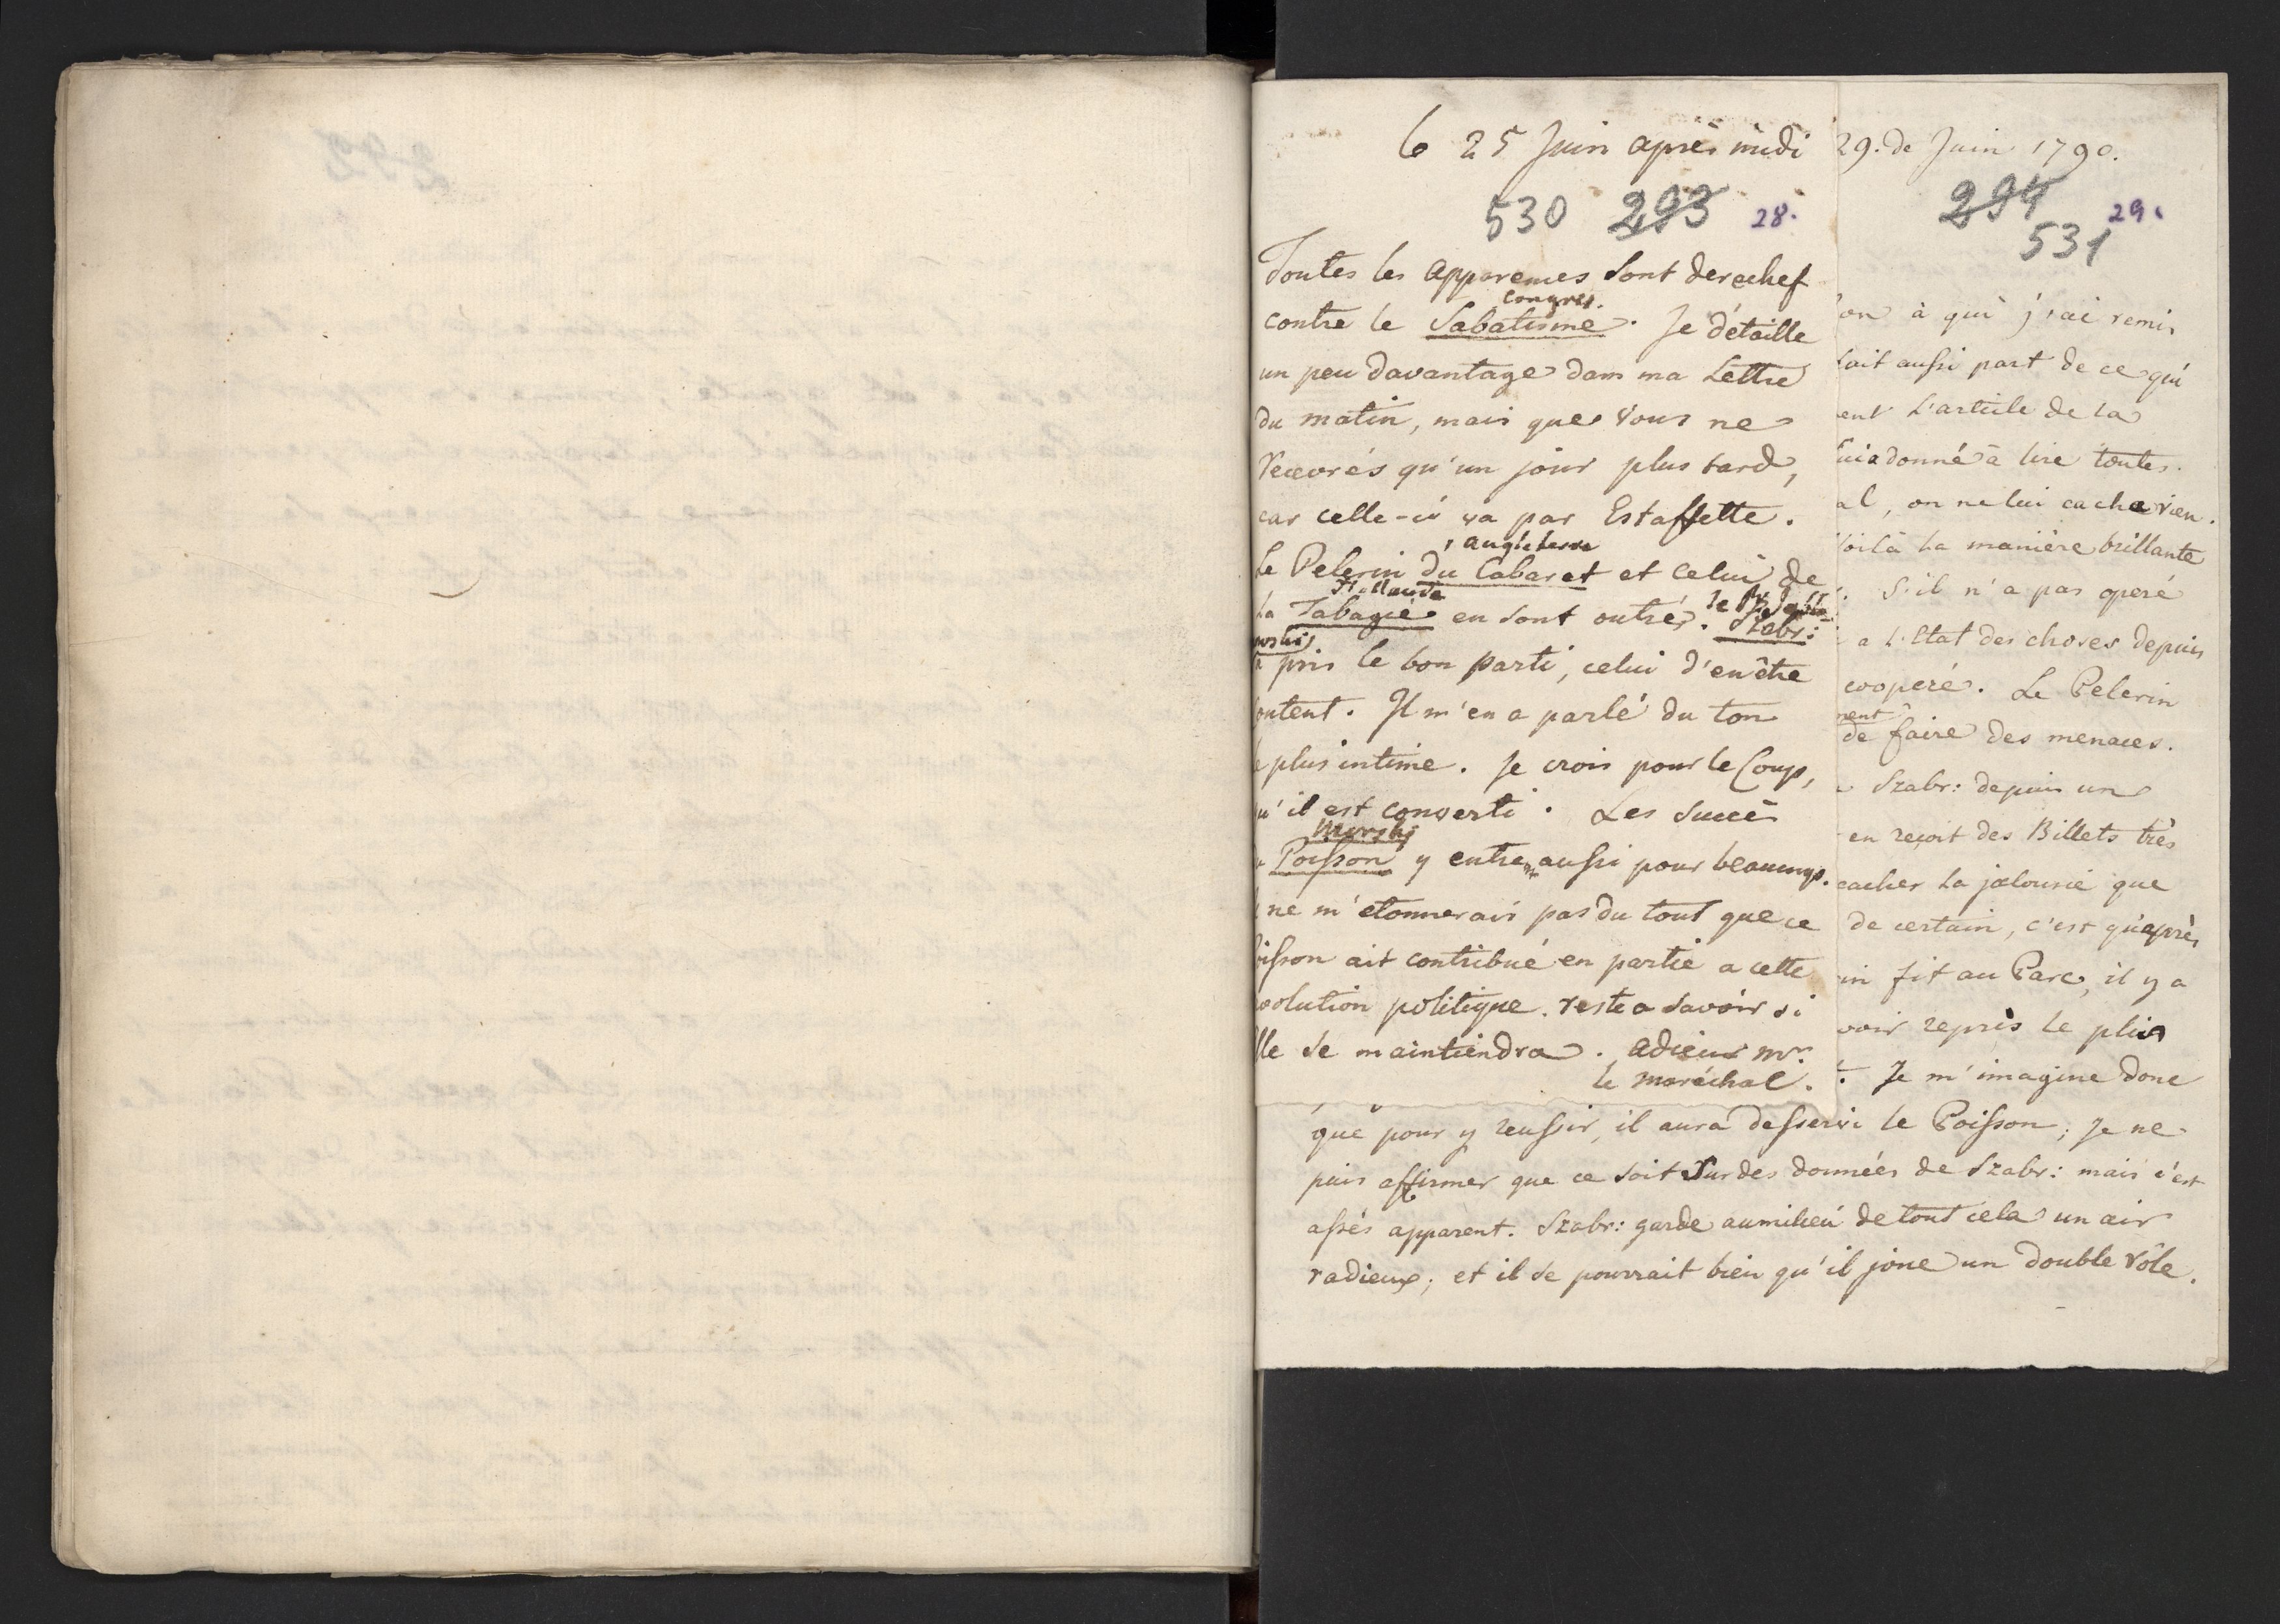 le 25 Juin après midi
530 293 28.
Toutes les apparences sont derechef
congrès.
contre le Sabatisme. Je détaille
un peu davantage dans ma Lettre
du matin, mais que vous ne
recevrés qu'un jour plus tard,
car celle-ci va par Estaffette.
angleterre
Le Pelerin du Cabaret et celui de
Hollande
la Tabagie en sont outrés. Szabr:
a pris le bon parti, celui d'en être
ontent. Il m'en a parlé du ton
e plus intime. Je crois pour le Coup,
u'il est converti. Les succès
Morski
Poisson y entre aussi pour beaucoup.
ne m'etonnerais pas du tout que ce
oisson ait contribué en partie a cette
volution politique. reste a savoir si
lle se maintiendra. adieu Mr.
le maréchal.
29. de Juin 1790.
294 29.
531
on à qui j'ai remis
fait aussi part de ce qui
ent L'article de la
lui a donné à lire toutes
al, on ne lui cache rien.
Voilà la manière brillante
S'il n'a pas operé
a l'Etat des choses depuis
cooperé. Le Pelerin
ment
de faire des menaces.
Szabr: depuis un
en reçoit des Billets très
cacher la jalousie que
de certain, c'est qu'après
in fit au Parc, il y a
voir repris le plus
Je m'imagine donc
que pour y reussir, il aura desservi le Poisson; Je ne
puis affirmer que ce soit sur des données de Szabr: mais c'est
assés apparent. Szabr: garde au milieu de tout cela un air
radieux; et il se pourrait bien qu'il joue un double rôle.